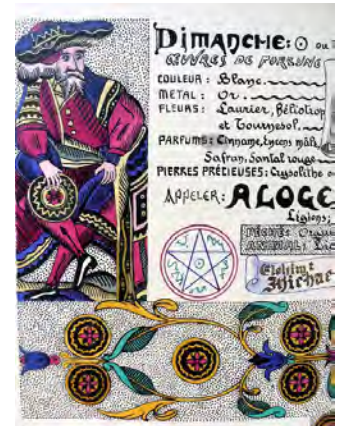 Dimanche: ☉ ou
ŒUVRES DE FORTUNE
COULEUR: Blanc.
METAL: Or.
FLEURS: Laurier, Héliotrop
et Tournesol,
PARFUMS: Cinname, Encens mâle
Safran, Santal rouge
PIERRES PRÉCIEUSES: Crysolithe o
APPELER: ALOGE
Légions;
PÉCHÉ: Orgue
ANIMAL: Lio
Elohim:
Michae